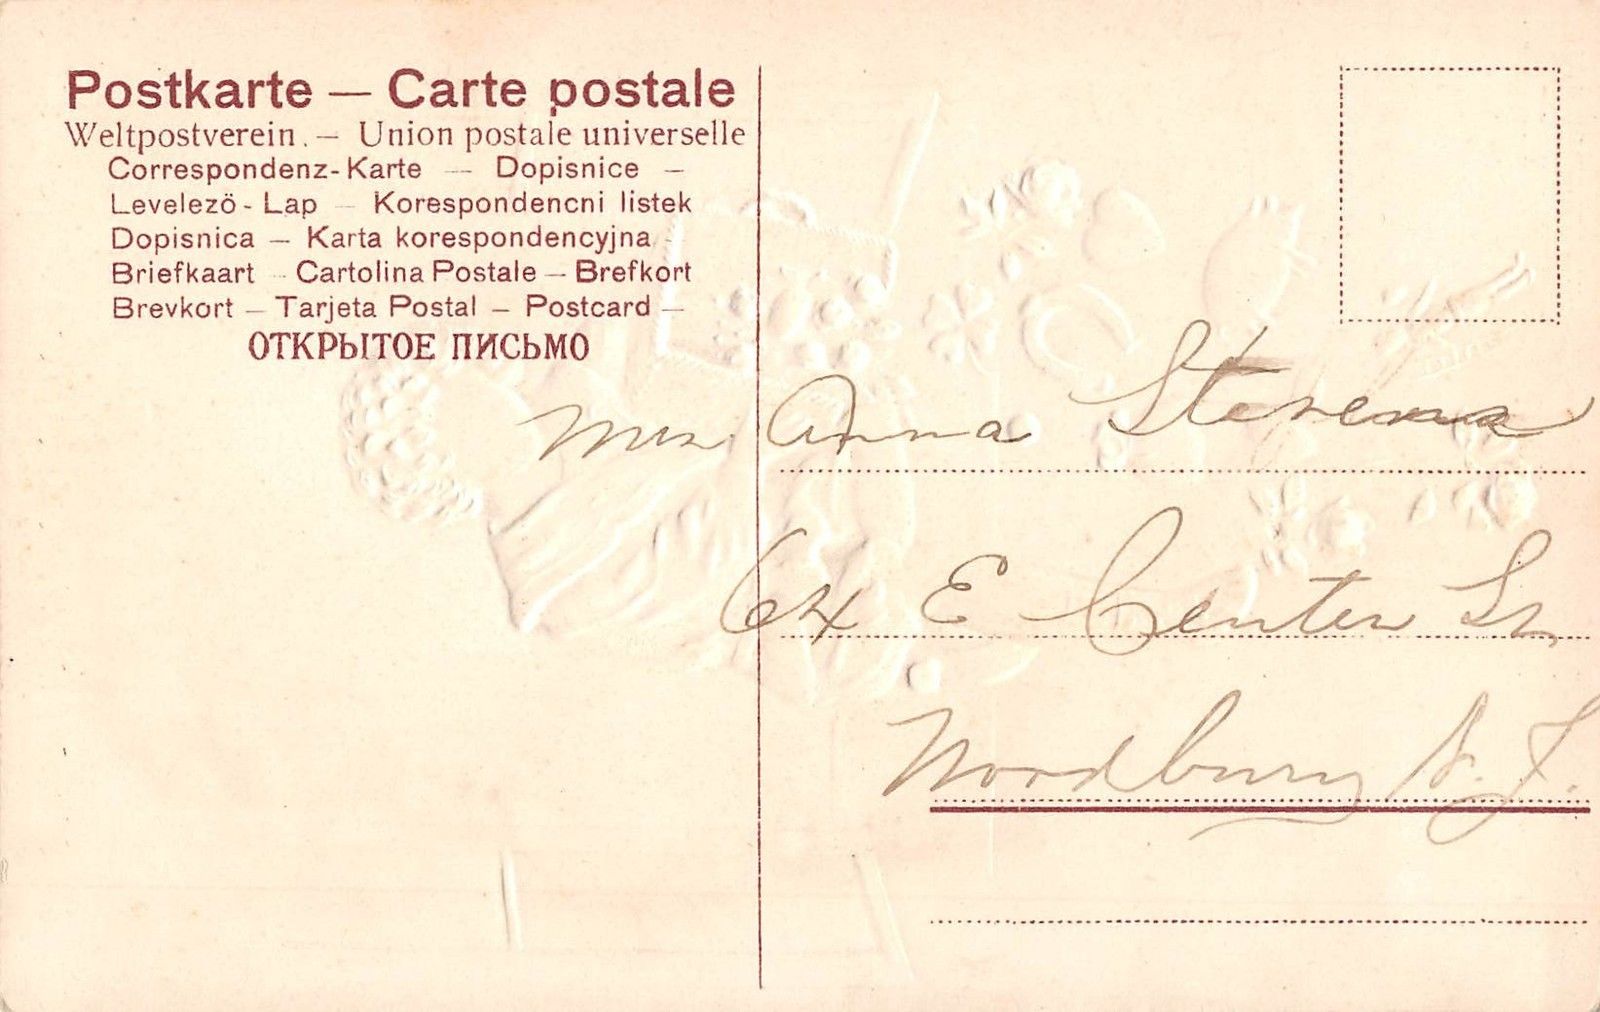 Postkarte — Carte postale
Weltpostverein. — Union postale universelle
Correspondenz-Karte — Dopisnice —
Levelezö - Lap — Korespondencni listek
Dopisnica — Karta korespondencyjna —
Briefkaart — Cartolina Postale — Brefkort
Brevkort — Tarjeta Postal — Postcard —
ОТКРЫТОЕ ПИСЬМО
Mrs Anna Stevens
64 E Center St
Woodbury N. J.